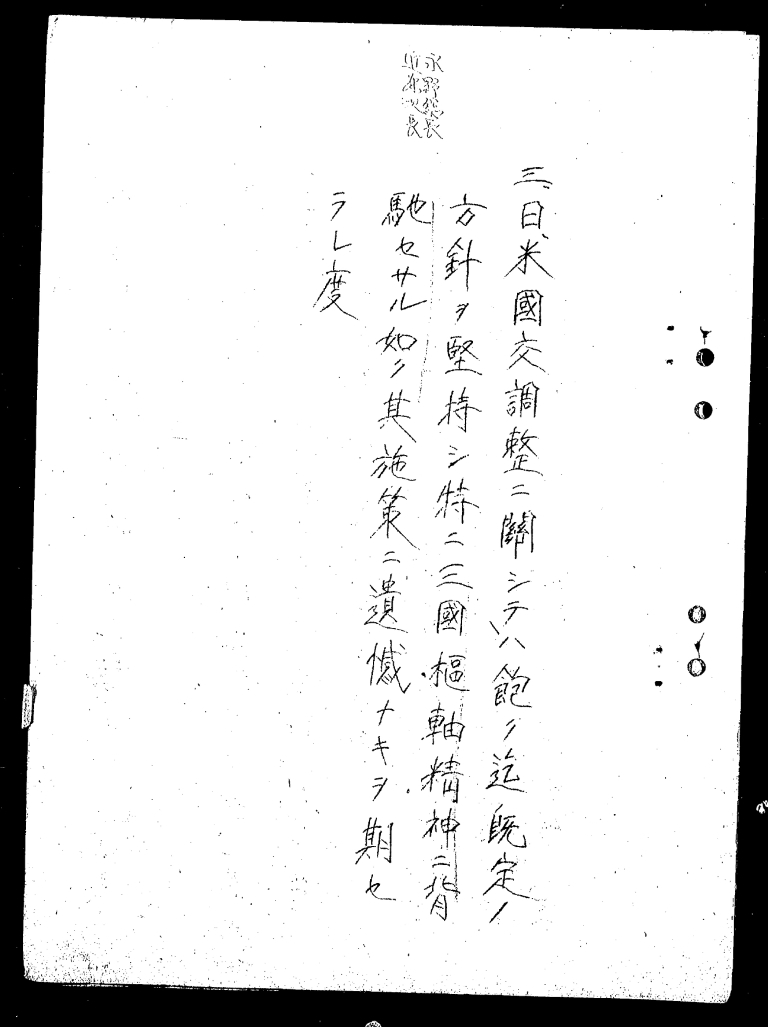 永野総長
近藤次長
三、日米國交調整ニ關シテハ飽ク迄既定ノ
方針ヲ堅持シ特ニ三國樞軸精神ニ背
馳セサル如ク其施策ニ遺憾ナキヲ期セ
ラレ度